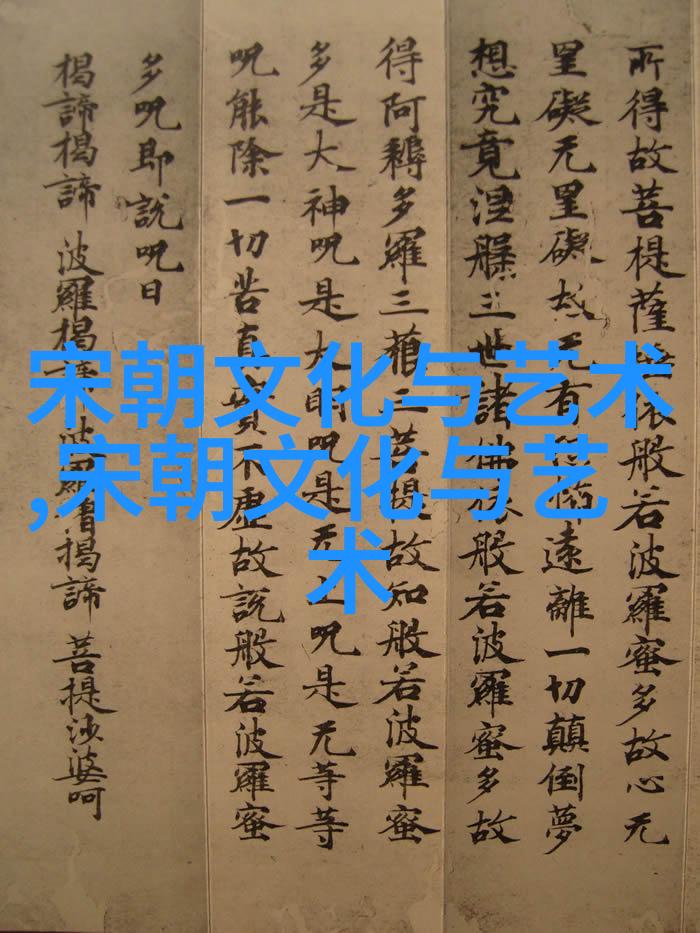 所得故菩提薩埵依般若波羅蜜多故心无
罣礙无罣礙故无有恐怖遠離一切顛倒夢
想究竟涅槃三世諸佛依般若波羅蜜多故
得阿耨多羅三藐三菩提故知般若波羅蜜
多是大神呪是大明呪是无上呪是无等等
呪能除一切苦真實不虛故說般若波羅蜜
多呪即說呪曰
揭諦揭諦 波羅揭諦 波羅僧揭諦 菩提沙婆呵
宋朝文化与艺术
,宋朝文化与艺
术